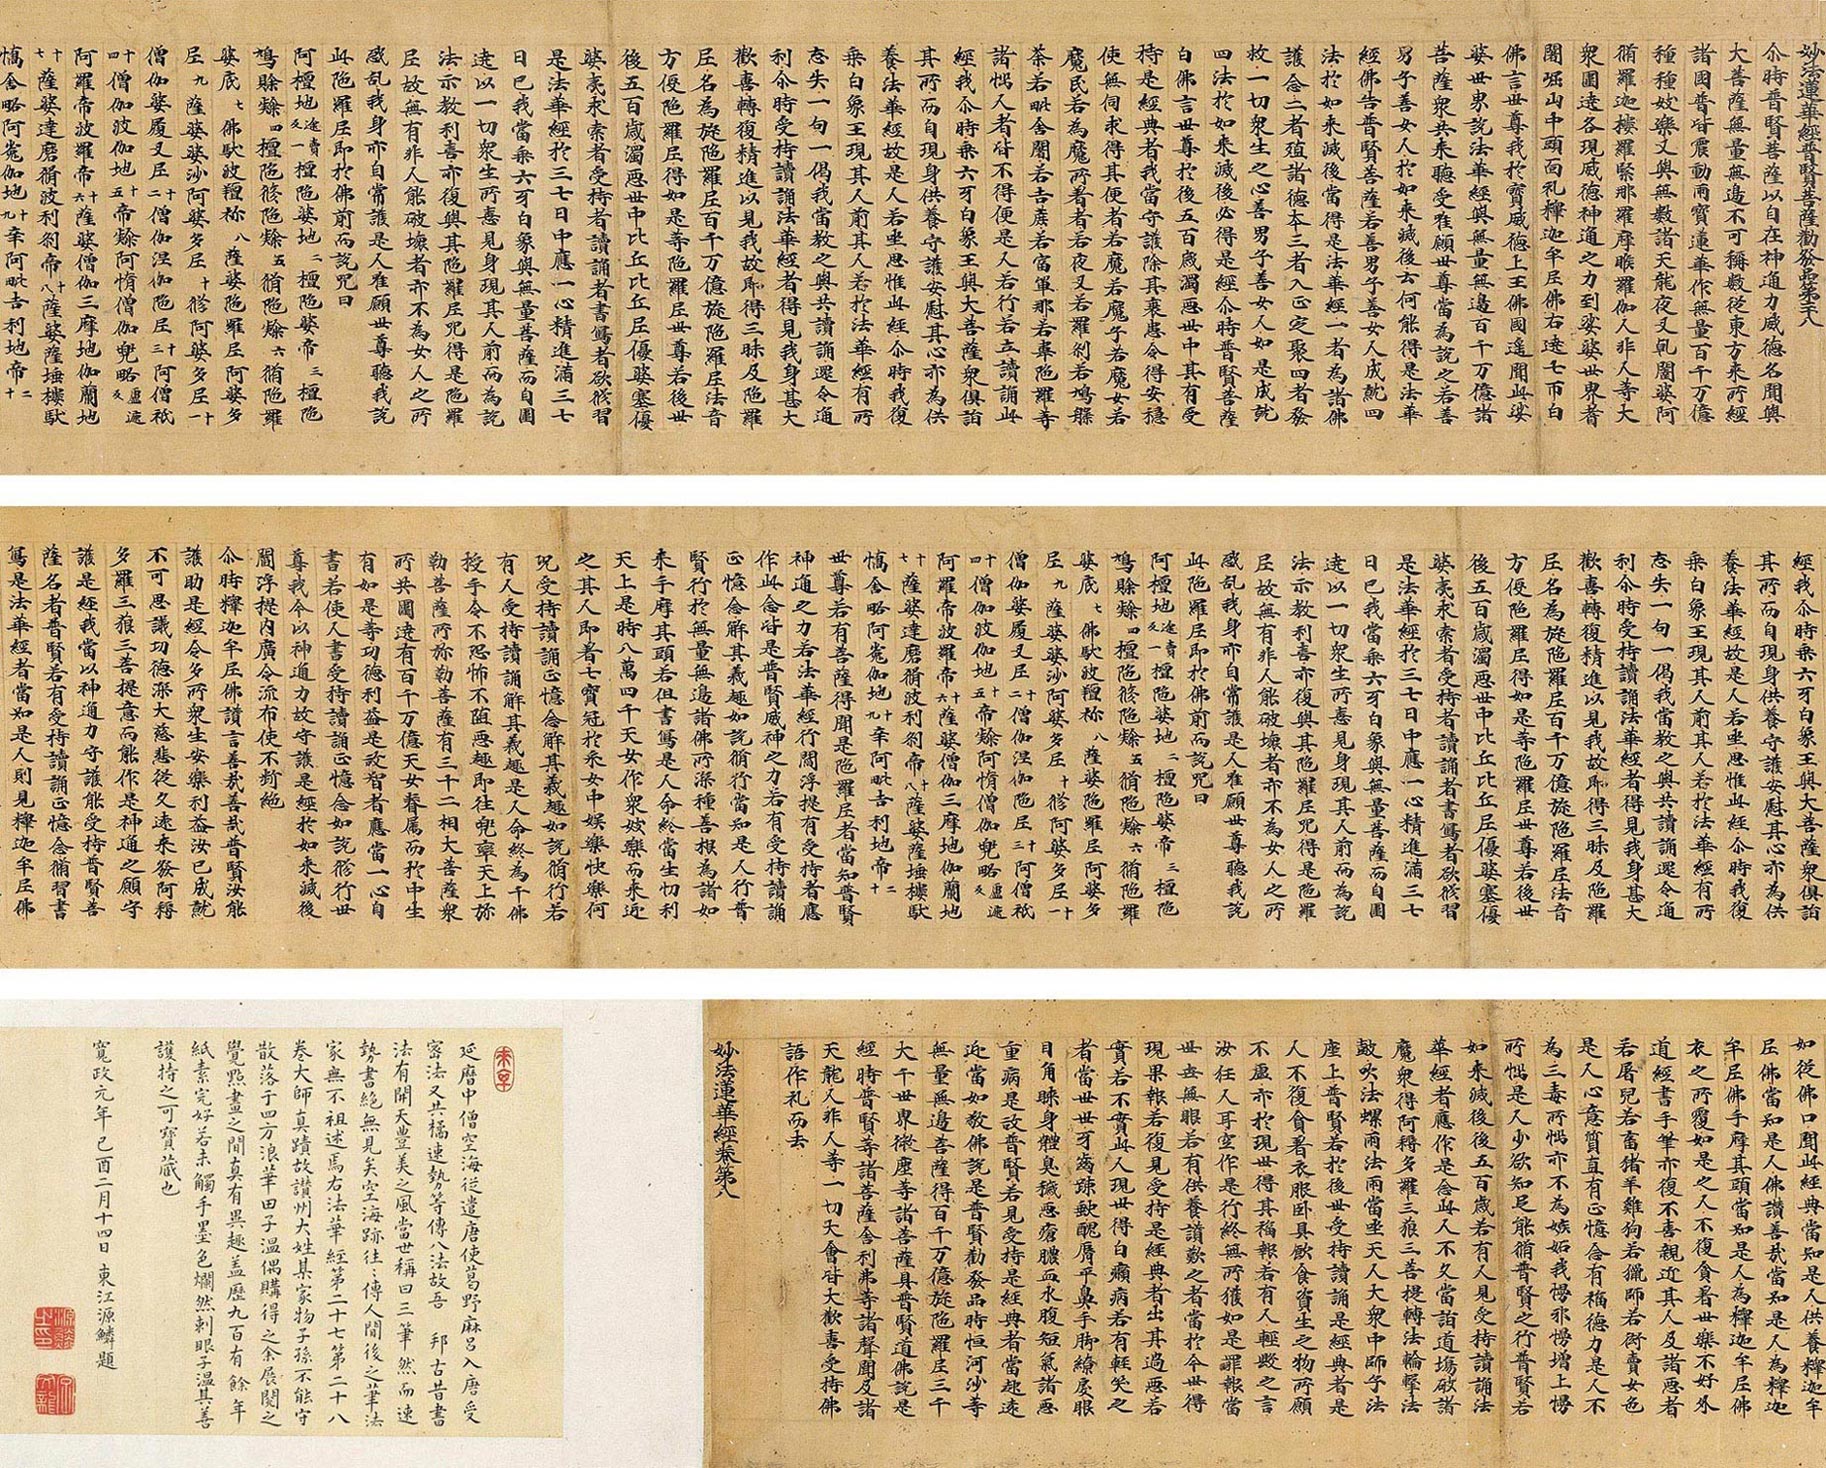 妙法蓮華經普賢菩薩勸發品第二十八
尒時普賢菩薩以自在神通力威德名聞與
大菩薩無量無邊不可稱數從東方來所經
諸國普皆震動雨寶蓮華作無量百千万億
種種妓樂又與無數諸天龍夜叉乹闥婆阿
脩羅迦樓羅緊那羅摩睺羅伽人非人等大
衆圍遶各現威德神通之力到娑婆世界耆
闍崛山中頭面礼釋迦牟尼佛右遶七帀白
佛言世尊我於寶威德上王佛國遥聞此娑
婆世界說法華經與無量無邊百千万億諸
菩薩衆共來聽受唯願世尊當為說之若善
男子善女人於如來滅後云何能得是法華
經佛告普賢菩薩若善男子善女人成就四
法於如來滅後當得是法華經一者為諸佛
護念二者殖諸德本三者入正定聚四者發
救一切衆生之心善男子善女人如是成就
四法於如來滅後必得是經尒時普賢菩薩
白佛言世尊於後五百歳濁惡世中其有受
持是經典者我當守護除其衰患令得安穩
使無伺求得其便者若魔若魔子若魔女若
魔民若為魔所著者若夜叉若羅剎若鳩槃
荼若毗舍闍若吉蔗若富單那若韋陁羅等
諸惱人者皆不得便是人若行若立讀誦此
經我尒時乘六牙白象王與大菩薩衆俱詣
其所而自現身供養守護安慰其心亦為供
養法華經故是人若坐思惟此經尒時我復
乘白象王現其人前其人若於法華經有所
忘失一句一偈我當教之與共讀誦還令通
利尒時受持讀誦法華經者得見我身甚大
歡喜轉復精進以見我故即得三昧及陁羅
尼名為旋陁羅尼百千万億旋陁羅尼法音
方便陁羅尼得如是等陁羅尼世尊若後世
後五百歳濁惡世中比丘比丘尼優婆塞優
婆夷求索者受持者讀誦者書寫者欲脩習
是法華經於三七日中應一心精進滿三七
日已我當乘六牙白象與無量菩薩而自圍
遶以一切衆生所憙見身現其人前而為說
法示教利喜亦復與其陁羅尼咒得是陁羅
尼故無有非人能破壞者亦不為女人之所
惑乱我身亦自常護是人唯願世尊聽我說
此陁羅尼即於佛前而說咒曰
阿檀地途賣反一檀陁婆地二檀陁婆帝三檀陁
鳩賒隸四檀陁脩陁隸五脩陁隸六脩陁羅
婆底七佛馱波羶祢八薩婆陁羅尼阿婆多
尼九薩婆婆沙阿婆多尼十脩阿婆多尼十一
僧伽婆履叉尼十二僧伽涅伽陁尼十三阿僧祇
十四僧伽波伽地十五帝隸阿惰僧伽兜略盧遮反
阿羅帝波羅帝十六薩婆僧伽三摩地伽蘭地
十七薩婆達磨脩波利剎帝十八薩婆薩埵樓馱
憍舍略阿㝹伽地十九辛阿毗吉利地帝二十
經我尒時乘六牙白象王與大菩薩衆俱詣
其所而自現身供養守護安慰其心亦為供
養法華經故是人若坐思惟此經尒時我復
乘白象王現其人前其人若於法華經有所
忘失一句一偈我當教之與共讀誦還令通
利尒時受持讀誦法華經者得見我身甚大
歡喜轉復精進以見我故即得三昧及陁羅
尼名為旋陁羅尼百千万億旋陁羅尼法音
方便陁羅尼得如是等陁羅尼世尊若後世
後五百歳濁惡世中比丘比丘尼優婆塞優
婆夷求索者受持者讀誦者書寫者欲脩習
是法華經於三七日中應一心精進滿三七
日已我當乘六牙白象與無量菩薩而自圍
遶以一切衆生所憙見身現其人前而為說
法示教利喜亦復與其陁羅尼咒得是陁羅
尼故無有非人能破壞者亦不為女人之所
惑乱我身亦自常護是人唯願世尊聽我說
此陁羅尼即於佛前而說咒曰
阿檀地途賣反一檀陁婆地二檀陁婆帝三檀陁
鳩賒隸四檀陁脩陁隸五脩陁隸六脩陁羅
婆底七佛馱波羶祢八薩婆陁羅尼阿婆多
尼九薩婆婆沙阿婆多尼十脩阿婆多尼十一
僧伽婆履叉尼十二僧伽涅伽陁尼十三阿僧祇
十四僧伽波伽地十五帝隸阿惰僧伽兜略盧遮反
阿羅帝波羅帝十六薩婆僧伽三摩地伽蘭地
十七薩婆達磨脩波利剎帝十八薩婆薩埵樓馱
憍舍略阿㝹伽地十九辛阿毗吉利地帝二十
世尊若有菩薩得聞是陁羅尼者當知普賢
神通之力若法華經行閻浮提有受持者應
作此念皆是普賢威神之力若有受持讀誦
正憶念解其義趣如說脩行當知是人行普
賢行於無量無邊諸佛所深種善根為諸如
來手摩其頭若但書寫是人命終當生忉利
天上是時八萬四千天女作衆妓樂而來迎
之其人即著七寶冠於采女中娛樂快樂何
况受持讀誦正憶念解其義趣如說脩行若
有人受持讀誦解其義趣是人命終為千佛
授手令不恐怖不墮惡趣即往兜率天上弥
勒菩薩所弥勒菩薩有三十二相大菩薩衆
所共圍遶有百千万億天女眷属而於中生
有如是等功德利益是故智者應當一心自
書若使人書受持讀誦正憶念如說脩行世
尊我今以神通力故守護是經於如來滅後
閻浮提内廣令流布使不斷絶
尒時釋迦牟尼佛讃言善哉善哉普賢汝能
護助是經令多所衆生安樂利益汝已成就
不可思議功德深大慈悲從久遠來發阿耨
多羅三藐三菩提意而能作是神通之願守
護是經我當以神通力守護能受持普賢菩
薩名者普賢若有受持讀誦正憶念脩習書
寫是法華經者當知是人則見釋迦牟尼佛
如從佛口聞此經典當知是人供養釋迦牟
尼佛當知是人佛讃善哉當知是人為釋迦
牟尼佛手摩其頭當知是人為釋迦牟尼佛
衣之所覆如是之人不復貪著世樂不好外
道經書手筆亦復不喜親近其人及諸惡者
若屠兒若畜猪羊雞狗若獵師若衒賣女色
是人心意質直有正憶念有福德力是人不
為三毒所惱亦不為嫉妬我慢邪慢增上慢
所惱是人少欲知足能脩普賢之行普賢若
如來滅後後五百歳若有人見受持讀誦法
華經者應作是念此人不久當詣道場破諸
魔衆得阿耨多羅三藐三菩提轉法輪擊法
皷吹法螺雨法雨當坐天人大衆中師子法
座上普賢若於後世受持讀誦是經典者是
人不復貪著衣服卧具飲食資生之物所願
不虛亦於現世得其福報若有人輕毀之言
汝狂人耳空作是行終無所獲如是罪報當
世世無眼若有供養讃歎之者當於今世得
現果報若復見受持是經典者出其過惡若
實若不實此人現世得白癩病若有輕笑之
者當世世牙齒踈缺醜脣平鼻手脚繚戾眼
目角睞身體臭穢惡瘡膿血水腹短氣諸惡
重病是故普賢若見受持是經典者當起遠
迎當如敬佛說是普賢勸發品時恒河沙等
無量無邊菩薩得百千万億旋陁羅尼三千
大千世界微塵等諸菩薩具普賢道佛說是
經時普賢等諸菩薩舍利弗等諸聲聞及諸
天龍人非人等一切大會皆大歡喜受持佛
語作礼而去
妙法蓮華經卷第八
延曆中僧空海從遣唐使葛野麻呂入唐受
密法又共橘逸勢等傳八法故吾 邦古昔書
法有開天豊美之風當世稱曰三筆然而逸
勢書絶無見矣空海跡往々傳人間後之筆法
家無不祖述焉右法華經第二十七第二十八
卷大師真蹟故讃州大姓某家物子孫不能守
散落于四方浪華田子溫偶購得之余展閱之
覺點畫之間真有異趣盖歷九百有餘年
紙素完好若未觸手墨色爛然刺眼子溫其善
護持之可寶蔵也
寬政元年己酉二月十四日東江源鱗題